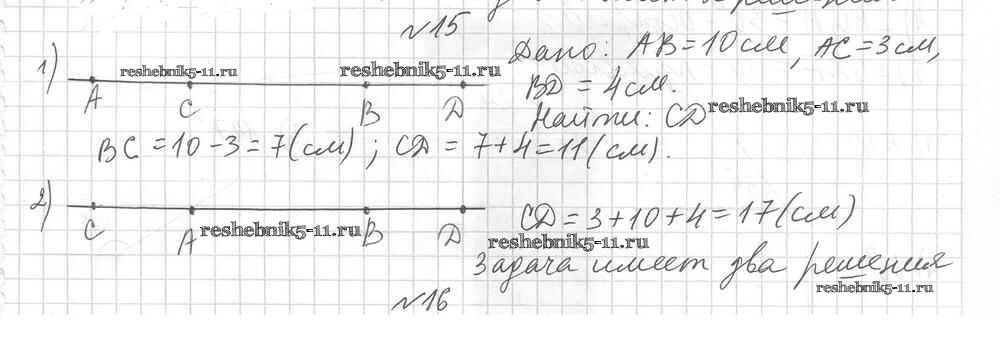 №15
1) Дано: AB=10см, AC=3см,
reshebnik5-11.ru reshebnik5-11.ru
A C B D BD = 4см.
Найти: CD reshebnik5-11.ru
BC =10-3=7(см) ; CD = 7+4=11(см).
2)
C A B D CD=3+10+4=17(см)
reshebnik5-11.ru reshebnik5-11.ru
Задача имеет два решения
reshebnik5-11.ru
№16